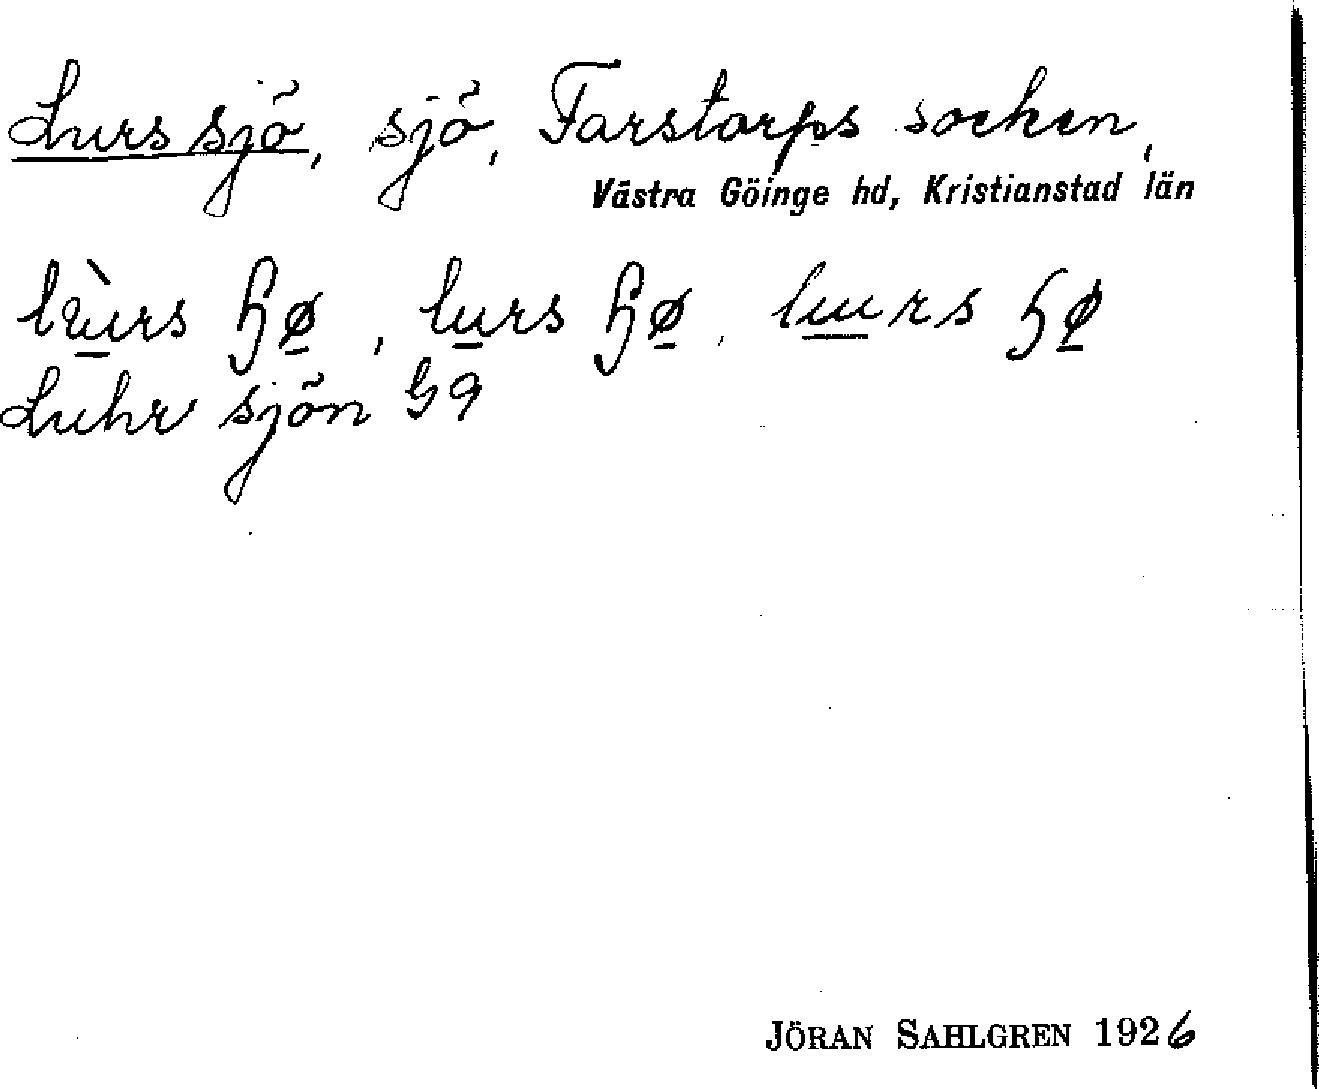 Lurssjö, sjö, Farstorps socken,
Västra Göinge hd, Kristianstad län
lurs ɧø, lurs ɧø, lurs ɧø
Luhr sjön G9
JÖRAN SAHLGREN 1926